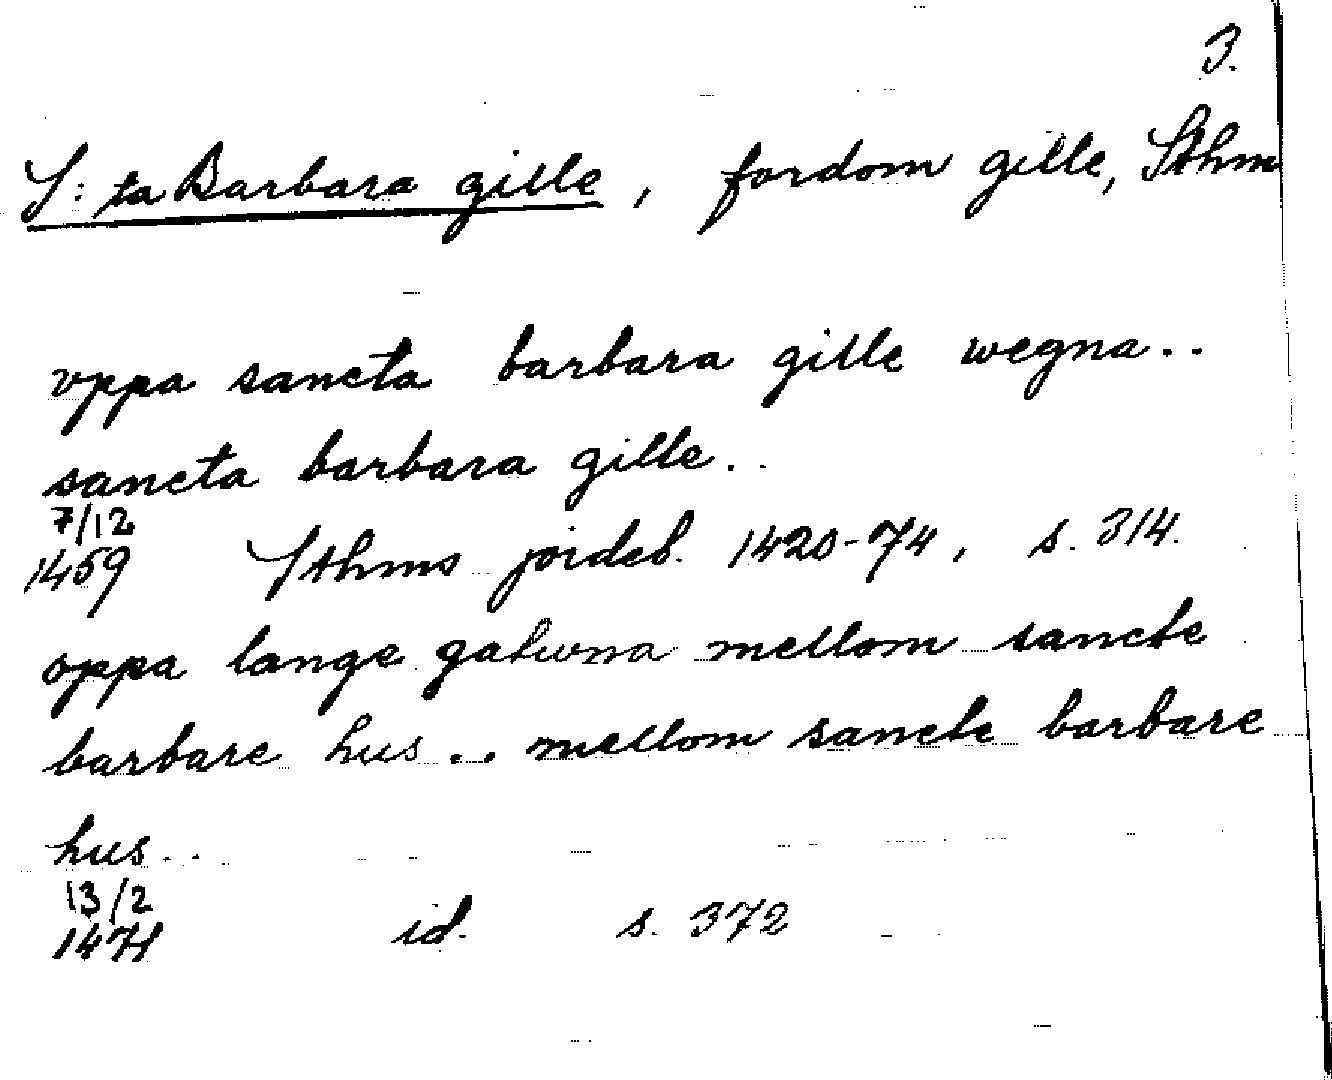 3.
S:ta Barbara gille, fordom gille, Sthm
vppa sancta barbara gille wegna..
sancta barbara gille..
7/12
1459 Sthms jordeb. 1420-74, s. 314.
oppa lange gatwna mellom sancte
barbare hus... mellom sancte barbare
hus..
13/2
1471 id. s. 372